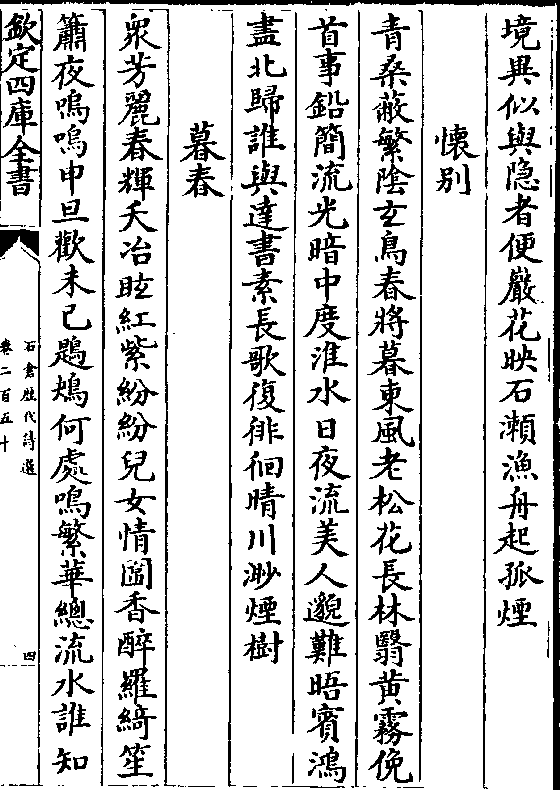 境異似與隐者便嚴花映石瀬漁舟起孤煙
懐别
青桑蔽繁陰玄鳥春將暮東風老松花長林翳黄霧俛
首事鉛簡流光暗中度淮水日夜流美人邈難晤賓鴻
盡北歸誰與達書素長歌復徘徊晴川渺煙樹
暮春
衆芳麗春輝夭冶眩紅紫紛紛兒女情圖香醉羅綺笙
簫夜嗚嗚申旦歡未已鶗鴂何處鳴繁華總流水誰知
欽定四庫全書
石倉歴代詩選
卷二百五十
四